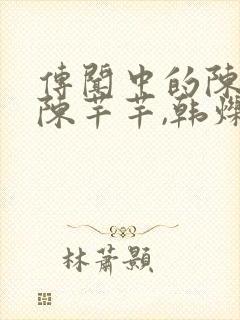 傳聞中的陳
陳芊芊,韓爍
林蕭顥